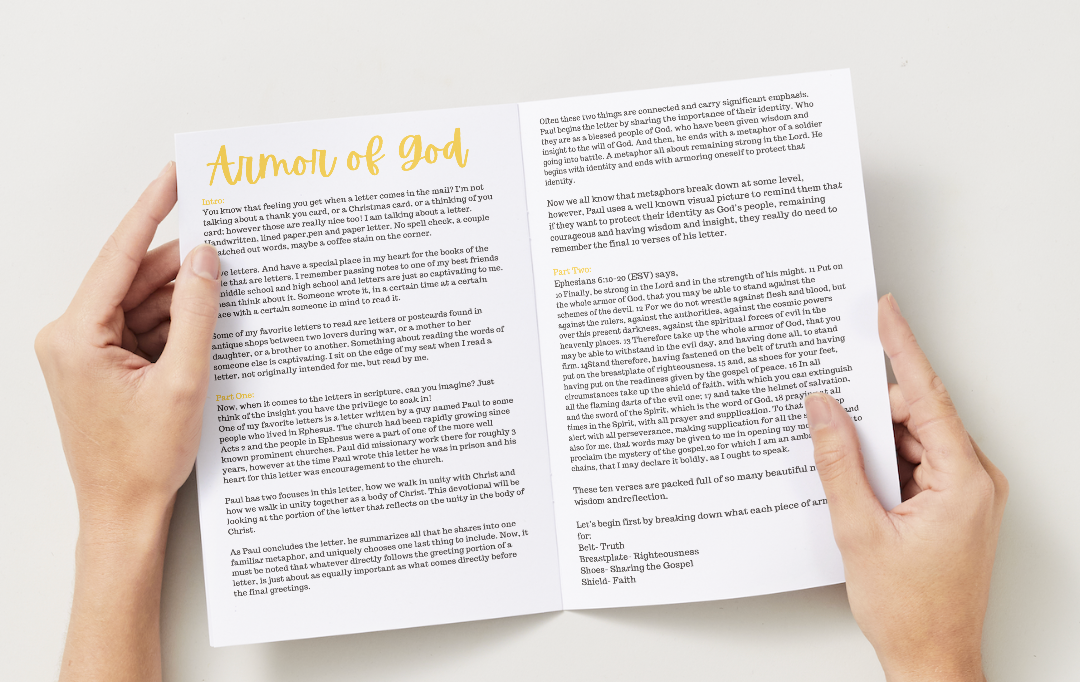 Armor of God
Intro:
You know that feeling you get when a letter comes in the mail? I'm not
talking about a thank you card, or a Christmas card, or a thinking of you
card; however those are really nice too! I am talking about a letter.
Handwritten, lined paper,pen and paper letter. No spell check, a couple
scratched out words, maybe a coffee stain on the corner.
letters. And have a special place in my heart for the books of the
that are letters. I remember passing notes to one of my best friends
middle school and high school and letters are just so captivating to me.
mean think about it. Someone wrote it, in a certain time at a certain
place with a certain someone in mind to read it.
Some of my favorite letters to read are letters or postcards found in
antique shops between two lovers during war, or a mother to her
daughter, or a brother to another. Something about reading the words of
someone else is captivating. I sit on the edge of my seat when I read a
letter, not originally intended for me, but read by me.
Part One:
Now, when it comes to the letters in scripture, can you imagine? Just
think of the insight you have the privilege to soak in!
One of my favorite letters is a letter written by a guy named Paul to some
people who lived in Ephesus. The church had been rapidly growing since
Acts 2 and the people in Ephesus were a part of one of the more well
known prominent churches. Paul did missionary work there for roughly 3
years, however at the time Paul wrote this letter he was in prison and his
heart for this letter was encouragement to the church.
Paul has two focuses in this letter, how we walk in unity with Christ and
how we walk in unity together as a body of Christ. This devotional will be
looking at the portion of the letter that reflects on the unity in the body of
Christ.
As Paul concludes the letter, he summarizes all that he shares into one
familiar metaphor, and uniquely chooses one last thing to include. Now, it
must be noted that whatever directly follows the greeting portion of a
letter, is just about as equally important as what comes directly before
the final greetings.
Often these two things are connected and carry significant emphasis.
Paul begins the letter by sharing the importance of their identity. Who
they are as a blessed people of God, who have been given wisdom and
insight to the will of God. And then, he ends with a metaphor of a soldier
going into battle. A metaphor all about remaining strong in the Lord. He
begins with identity and ends with armoring oneself to protect that
identity.
Now we all know that metaphors break down at some level,
however, Paul uses a well known visual picture to remind them that
if they want to protect their identity as God's people, remaining
courageous and having wisdom and insight, they really do need to
remember the final 10 verses of his letter.
Part Two:
Ephesians 6:10-20 (ESV) says,
10 Finally, be strong in the Lord and in the strength of his might. 11 Put on
the whole armor of God, that you may be able to stand against the
schemes of the devil. 12 For we do not wrestle against flesh and blood, but
against the rulers, against the authorities, against the cosmic powers
over this present darkness, against the spiritual forces of evil in the
heavenly places. 13 Therefore take up the whole armor of God, that you
may be able to withstand in the evil day, and having done all, to stand
firm. 14Stand therefore, having fastened on the belt of truth and having
put on the breastplate of righteousness, 15 and, as shoes for your feet,
having put on the readiness given by the gospel of peace. 16 In all
circumstances take up the shield of faith, with which you can extinguish
all the flaming darts of the evil one; 17 and take the helmet of salvation,
and the sword of the Spirit, which is the word of God, 18 praying at all
times in the Spirit, with all prayer and supplication. To that keep
alert with all perseverance, making supplication for all the and
also for me, that words may be given to me in opening my to
proclaim the mystery of the gospel,20 for which I am an
chains, that I may declare it boldly, as I ought to speak.
These ten verses are packed full of so many beautiful
wisdom andreflection.
Let's begin first by breaking down what each piece of
for:
Belt- Truth
Breastplate- Righteousness
Shoes- Sharing the Gospel
Shield- Faith